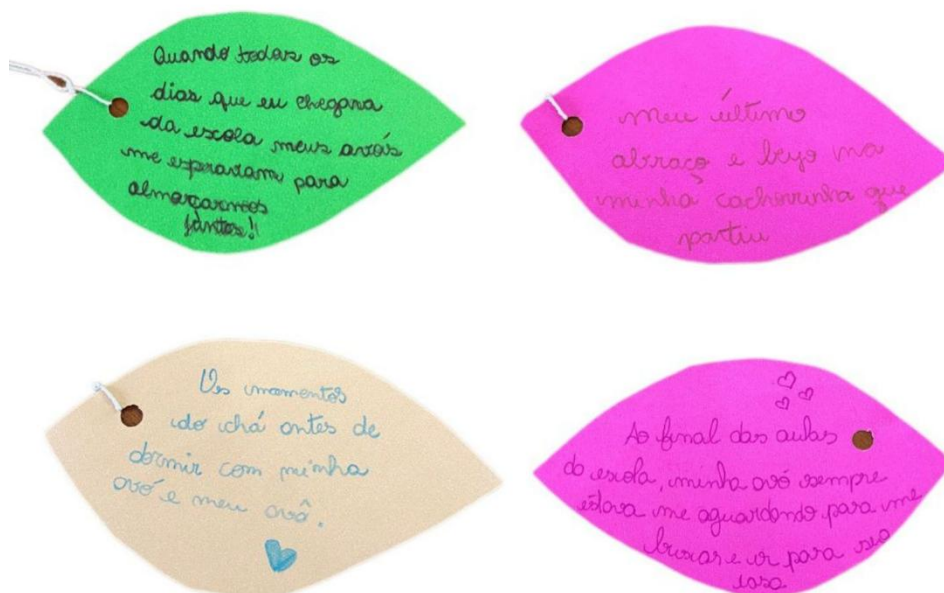 Quando todos os
dias que eu chegava
da escola meus avós
me esperavam para
almoçarmos
juntos!
Meu último
abraço e beijo na
minha cachorrinha que
partiu
Os momentos
do chá antes de
dormir com minha
avó e meu avô.
Ao final das aulas
da escola, minha avó sempre
estava me aguardando para me
buscar e ir para sua
casa